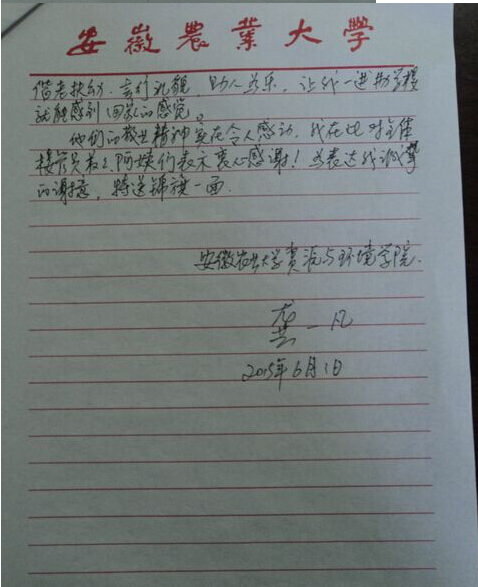 安徽農業大學
偕老扶幼、言行礼貌、助人为乐,让我一进新学校
就能感到回家的感觉。
他们的敬业精神实在令人感动,我在此对全体
楼管员叔叔、阿姨们表示衷心感谢!为表达我诚挚
的谢意,特送锦旗一面.
安徽农业大学资源与环境学院.
龚一凡
2015年6月1日